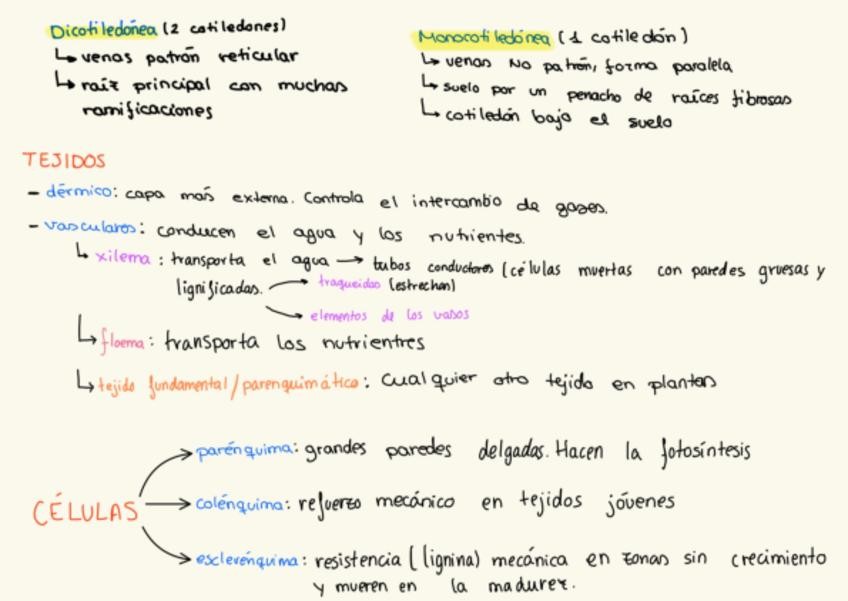 Dicotiledónea (2 cotiledones)
↳ venas patrón reticular
↳ raíz principal con muchas
ramificaciones
Monocotiledónea (1 cotiledón)
↳ venas No patrón, forma paralela
↳ suelo por un penacho de raíces fibrosas
↳ cotiledón bajo el suelo
TEJIDOS
- dérmico: capa más externa. Controla el intercambio de gases.
- vasculares: conducen el agua y los nutrientes.
↳ xilema: transporta el agua → tubos conductores (células muertas con paredes gruesas y
lignificadas. → traqueidas (estrechan)
→ elementos de los vasos
↳ floema: transporta los nutrientres
↳ tejido fundamental/parenquimático: Cualquier otro tejido en plantas
CÉLULAS
→ parénquima: grandes paredes delgadas. Hacen la fotosíntesis
→ colénquima: refuerzo mecánico en tejidos jóvenes
→ esclerénquima: resistencia (lignina) mecánica en zonas sin crecimiento
y mueren en la madurez.